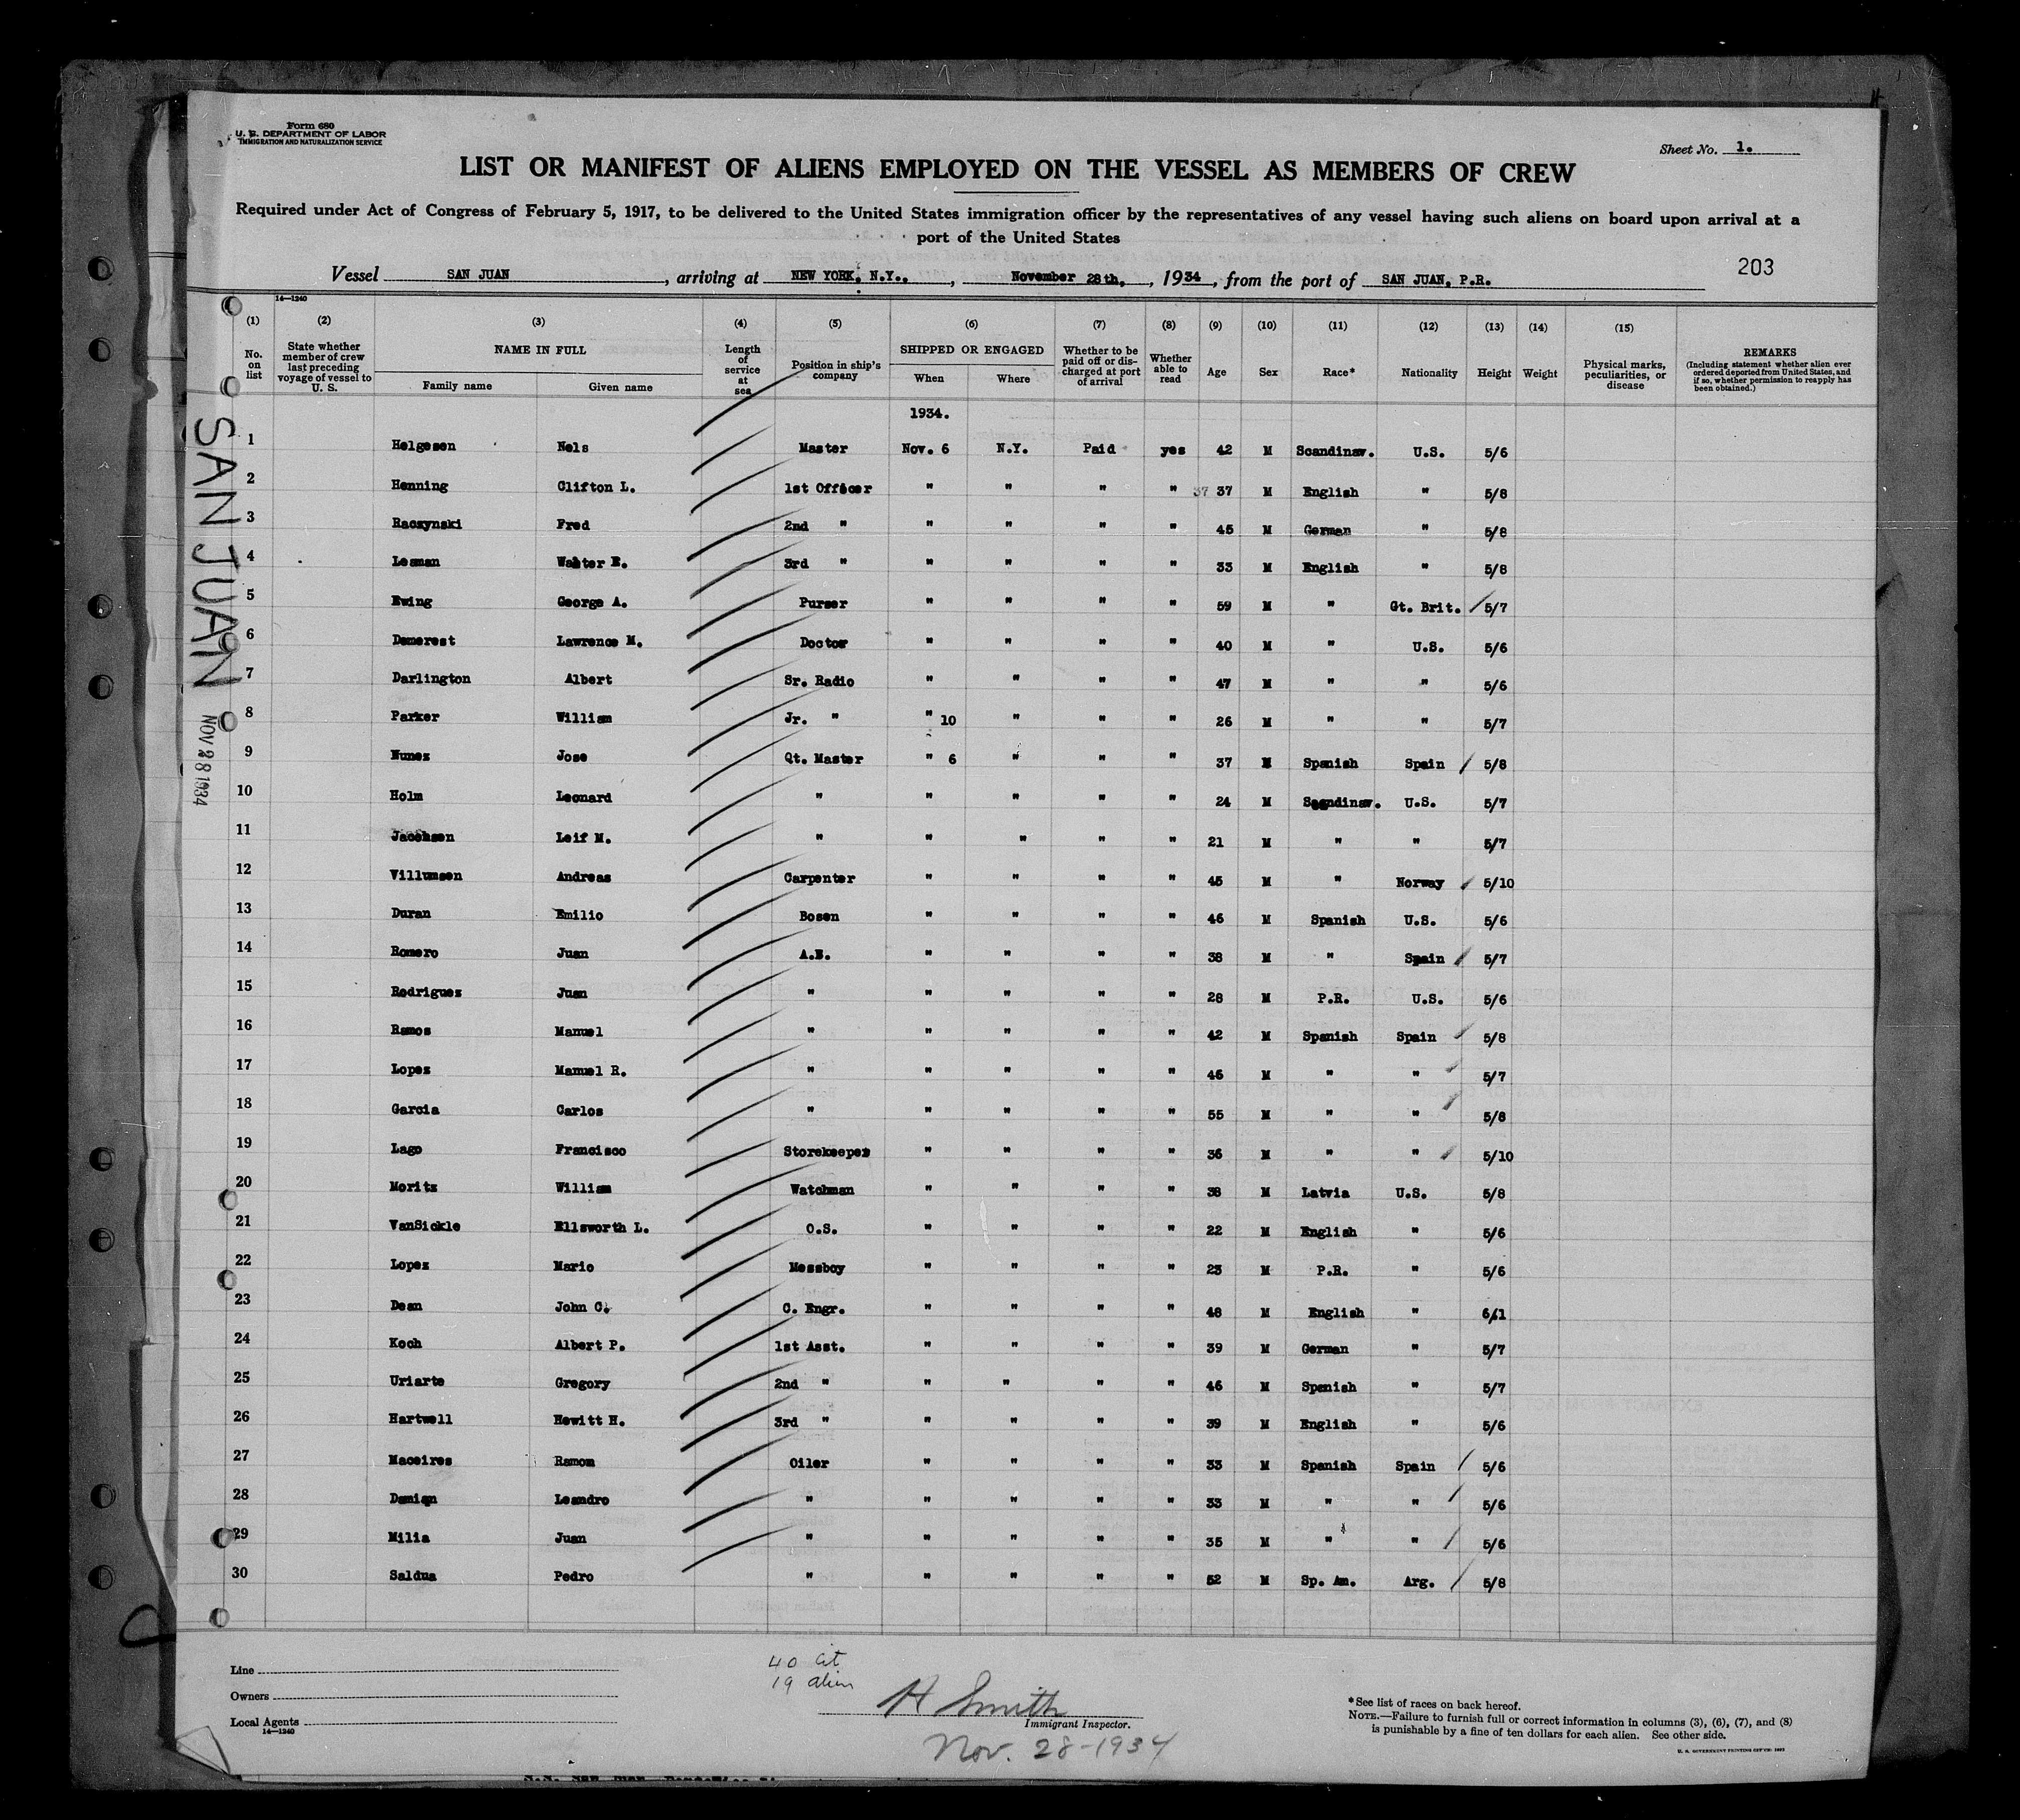 Form 680
U. S. DEPARTMENT OF LABOR
IMMIGRATION AND NATURALIZATION SERVICE
Sheet No. 1.
LIST OR MANIFEST OF ALIENS EMPLOYED ON THE VESSEL AS MEMBERS OF CREW
Required under Act of Congress of February 5, 1917, to be delivered to the United States immigration officer by the representatives of any vessel having such aliens on board upon arrival at a
port of the United States
203
Vessel SAN JUAN, arriving at NEW YORK, N.Y., November 28th, 1934, from the port of SAN JUAN, P.R.
14—1240
(1) (2) (3) (4) (5) (6) (7) (8) (9) (10) (11) (12) (13) (14) (15)
No. on list
State whether member of crew last preceding voyage of vessel to U. S.
NAME IN FULL
Family name Given name
Length of service at sea
Position in ship's company
SHIPPED OR ENGAGED
When Where
Whether to be paid off or discharged at port of arrival
Whether able to read
Age Sex Race* Nationality Height Weight
Physical marks, peculiarities, or disease
REMARKS
(Including statement whether alien ever ordered deported from United States, and if so, whether permission to reapply has been obtained.)
1934.
1 Helgesen Nels Master Nov. 6 N.Y. Paid yes 42 M Scandinav. U.S. 5/6
2 Henning Clifton L. 1st Officer " " " " 37 37 M English " 5/8
3 Raczynski Fred 2nd " " " " " 45 M German " 5/8
4 Lesman Walter E. 3rd " " " " " 33 M English " 5/8
5 Ewing George A. Purser " " " " 59 M " Gt. Brit. 5/7
6 Demerest Lawrence M. Doctor " " " " 40 M " U.S. 5/6
7 Darlington Albert Sr. Radio " " " " 47 M " " 5/6
8 Parker William Jr. " " 10 " " " 26 M " " 5/7
9 Nunez Jose Qt. Master " 6 " " " 37 M Spanish Spain 5/8
10 Holm Leonard " " " " " 24 M Scandinav. U.S. 5/7
11 Jacobsen Leif M. " " " " " 21 M " " 5/7
12 Villumsen Andreas Carpenter " " " " 45 M " Norway 5/10
13 Duran Emilio Bosen " " " " 46 M Spanish U.S. 5/6
14 Romero Juan A.B. " " " " 38 M " Spain 5/7
15 Rodriguez Juan " " " " " 28 M P.R. U.S. 5/6
16 Ramos Manuel " " " " " 42 M Spanish Spain 5/8
17 Lopez Manuel R. " " " " " 46 M " " 5/7
18 Garcia Carlos " " " " " 55 M " " 5/8
19 Lago Francisco Storekeeper " " " " 36 M " " 5/10
20 Moritz William Watchman " " " " 38 M Latvia U.S. 5/8
21 VanSickle Ellsworth L. O.S. " " " " 22 M English " 5/6
22 Lopez Mario Messboy " " " " 23 M P.R. " 5/6
23 Dean John C. C. Engr. " " " " 48 M English " 6/1
24 Koch Albert P. 1st Asst. " " " " 39 M German " 5/7
25 Uriarte Gregory 2nd " " " " " 46 M Spanish " 5/7
26 Hartwell Hewitt H. 3rd " " " " " 39 M English " 5/6
27 Maceires Ramon Oiler " " " " 33 M Spanish Spain 5/6
28 Damian Leandro " " " " " 33 M " " 5/6
29 Milia Juan " " " " " 35 M " " 5/6
30 Saldua Pedro " " " " " 52 M Sp. Am. Arg. 5/8
SAN JUAN
NOV 28 1934
Line
Owners
Local Agents
14—1240
40 cit
19 alien
H Smith
Immigrant Inspector.
Nov. 28-1934
*See list of races on back hereof.
NOTE.—Failure to furnish full or correct information in columns (3), (6), (7), and (8)
is punishable by a fine of ten dollars for each alien. See other side.